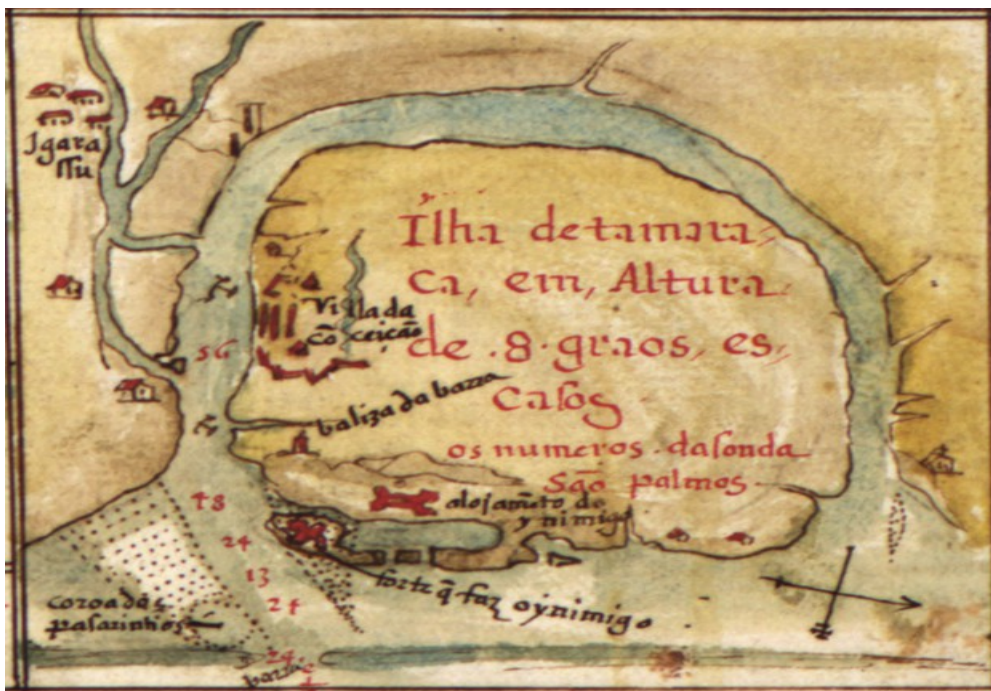 Igara
ssu
Ilha detamara
ca, em, Altura
de .8. graos, es
casos
os numeros. dasonda
são palmos.
Villa da
cõceição
baliza da barra
alojamẽto do
ynimigo
forte q̃ faz oynimigo
coroa dos
pasarinhos
barra
56
48
24
13
24